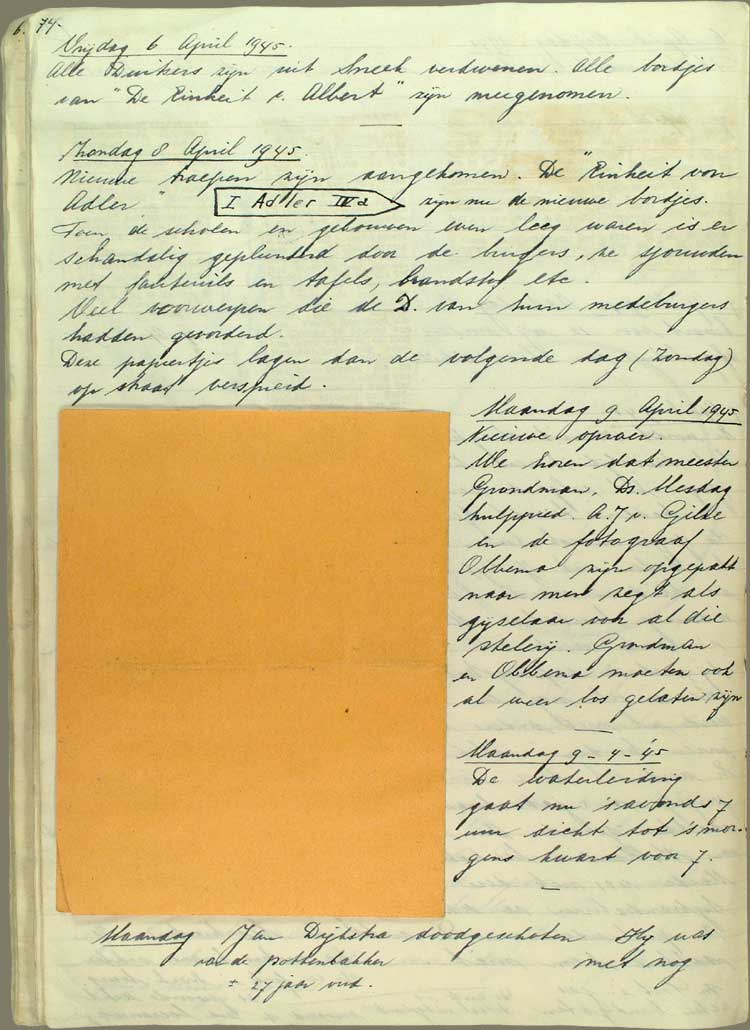 6. 74.
Vrijdag 6 April 1945.
Alle Duikers zijn uit Sneek verdwenen. Alle bordjes
van "De Einheit v. Albert" zijn meegenomen.
Zondag 8 April 1945.
Nieuwe troepen zijn aangekomen. De "Einheit von
Adler" I Adler IVa zijn nu de nieuwe bordjes.
Toen de scholen en gebouwen even leeg waren is er
schandelig geplunderd door de burgers, ze sjouwden
met fauteuils en tafels, brandstof etc.
Veel voorwerpen die de D. van hun medeburgers
hadden gevorderd.
Deze papiertjes lagen dan de volgende dag (Zondag)
op straat verspreid.
Maandag 9 April 1945
Nieuwe oproer.
We horen dat meester
Grondman, Ds. Mesdag
hulppred. A.J v. Gilse
en de fotograaf
Obbema zijn opgepakt
naar men zegt als
gijselaar voor al die
stelerij. Grondman
en Obbema moeten ook
al weer los gelaten zijn
Maandag 9-4-'45
De waterleiding
gaat nu 's avonds 7
uur dicht tot 's mor-
gens kwart voor 7.
Maandag Jan Dijkstra doodgeschoten Hij was
v. de pottenbakker met nog
± 27 jaar oud.